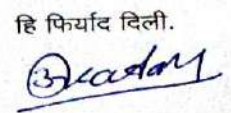 हि फिर्याद दिली.